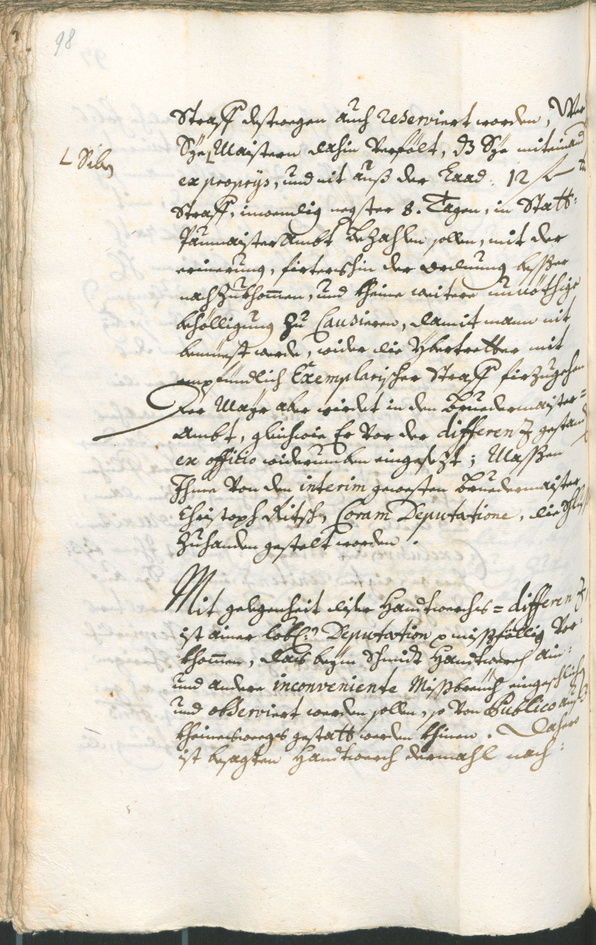 98
Straff destwegen auch reserviert worden, Wer
Sye Maistern dahin verfölt, dz Sye miteinand
ex proprijs, und nit auß der Laad. 12 f
Straff, inwendig negster 8. Tagen, in Statt=
Paumaister Ambt bezahlen sollen, mit der
erinerung, firterhin der ordnung besser
nachzukhomen, und kheine weitere unnöthige
behölligung zu Causieren, damit mann nit
bemüest werde, wider die Ybertretter mit
empfindlich Exemplarischer Straff firzugehen
Der Mayr aber wirdet in den Bruedermaister=
Ambt, gleichwie Er vor der differenz gestand
ex officio widerumben eingesezt; Massen
Ihme von den interim gewesten Bruedermaister
Christoph Ritsch, Coram Deputatione, die
zuhanden gestelt worden.
Mit gelegenheit diser Handtwerchs= differenz
ist ainer löbl: Deputation mißfällig vor=
khomen, das beym Schmidt Handtwerch ain=
und andere inconveniente Mißbreuch eingeschlichen
und observiert werden sollen, so von Publico
kheineswegs gestatt werden khinen. Dahero
ist besagten Handtwerch dermahl nach=